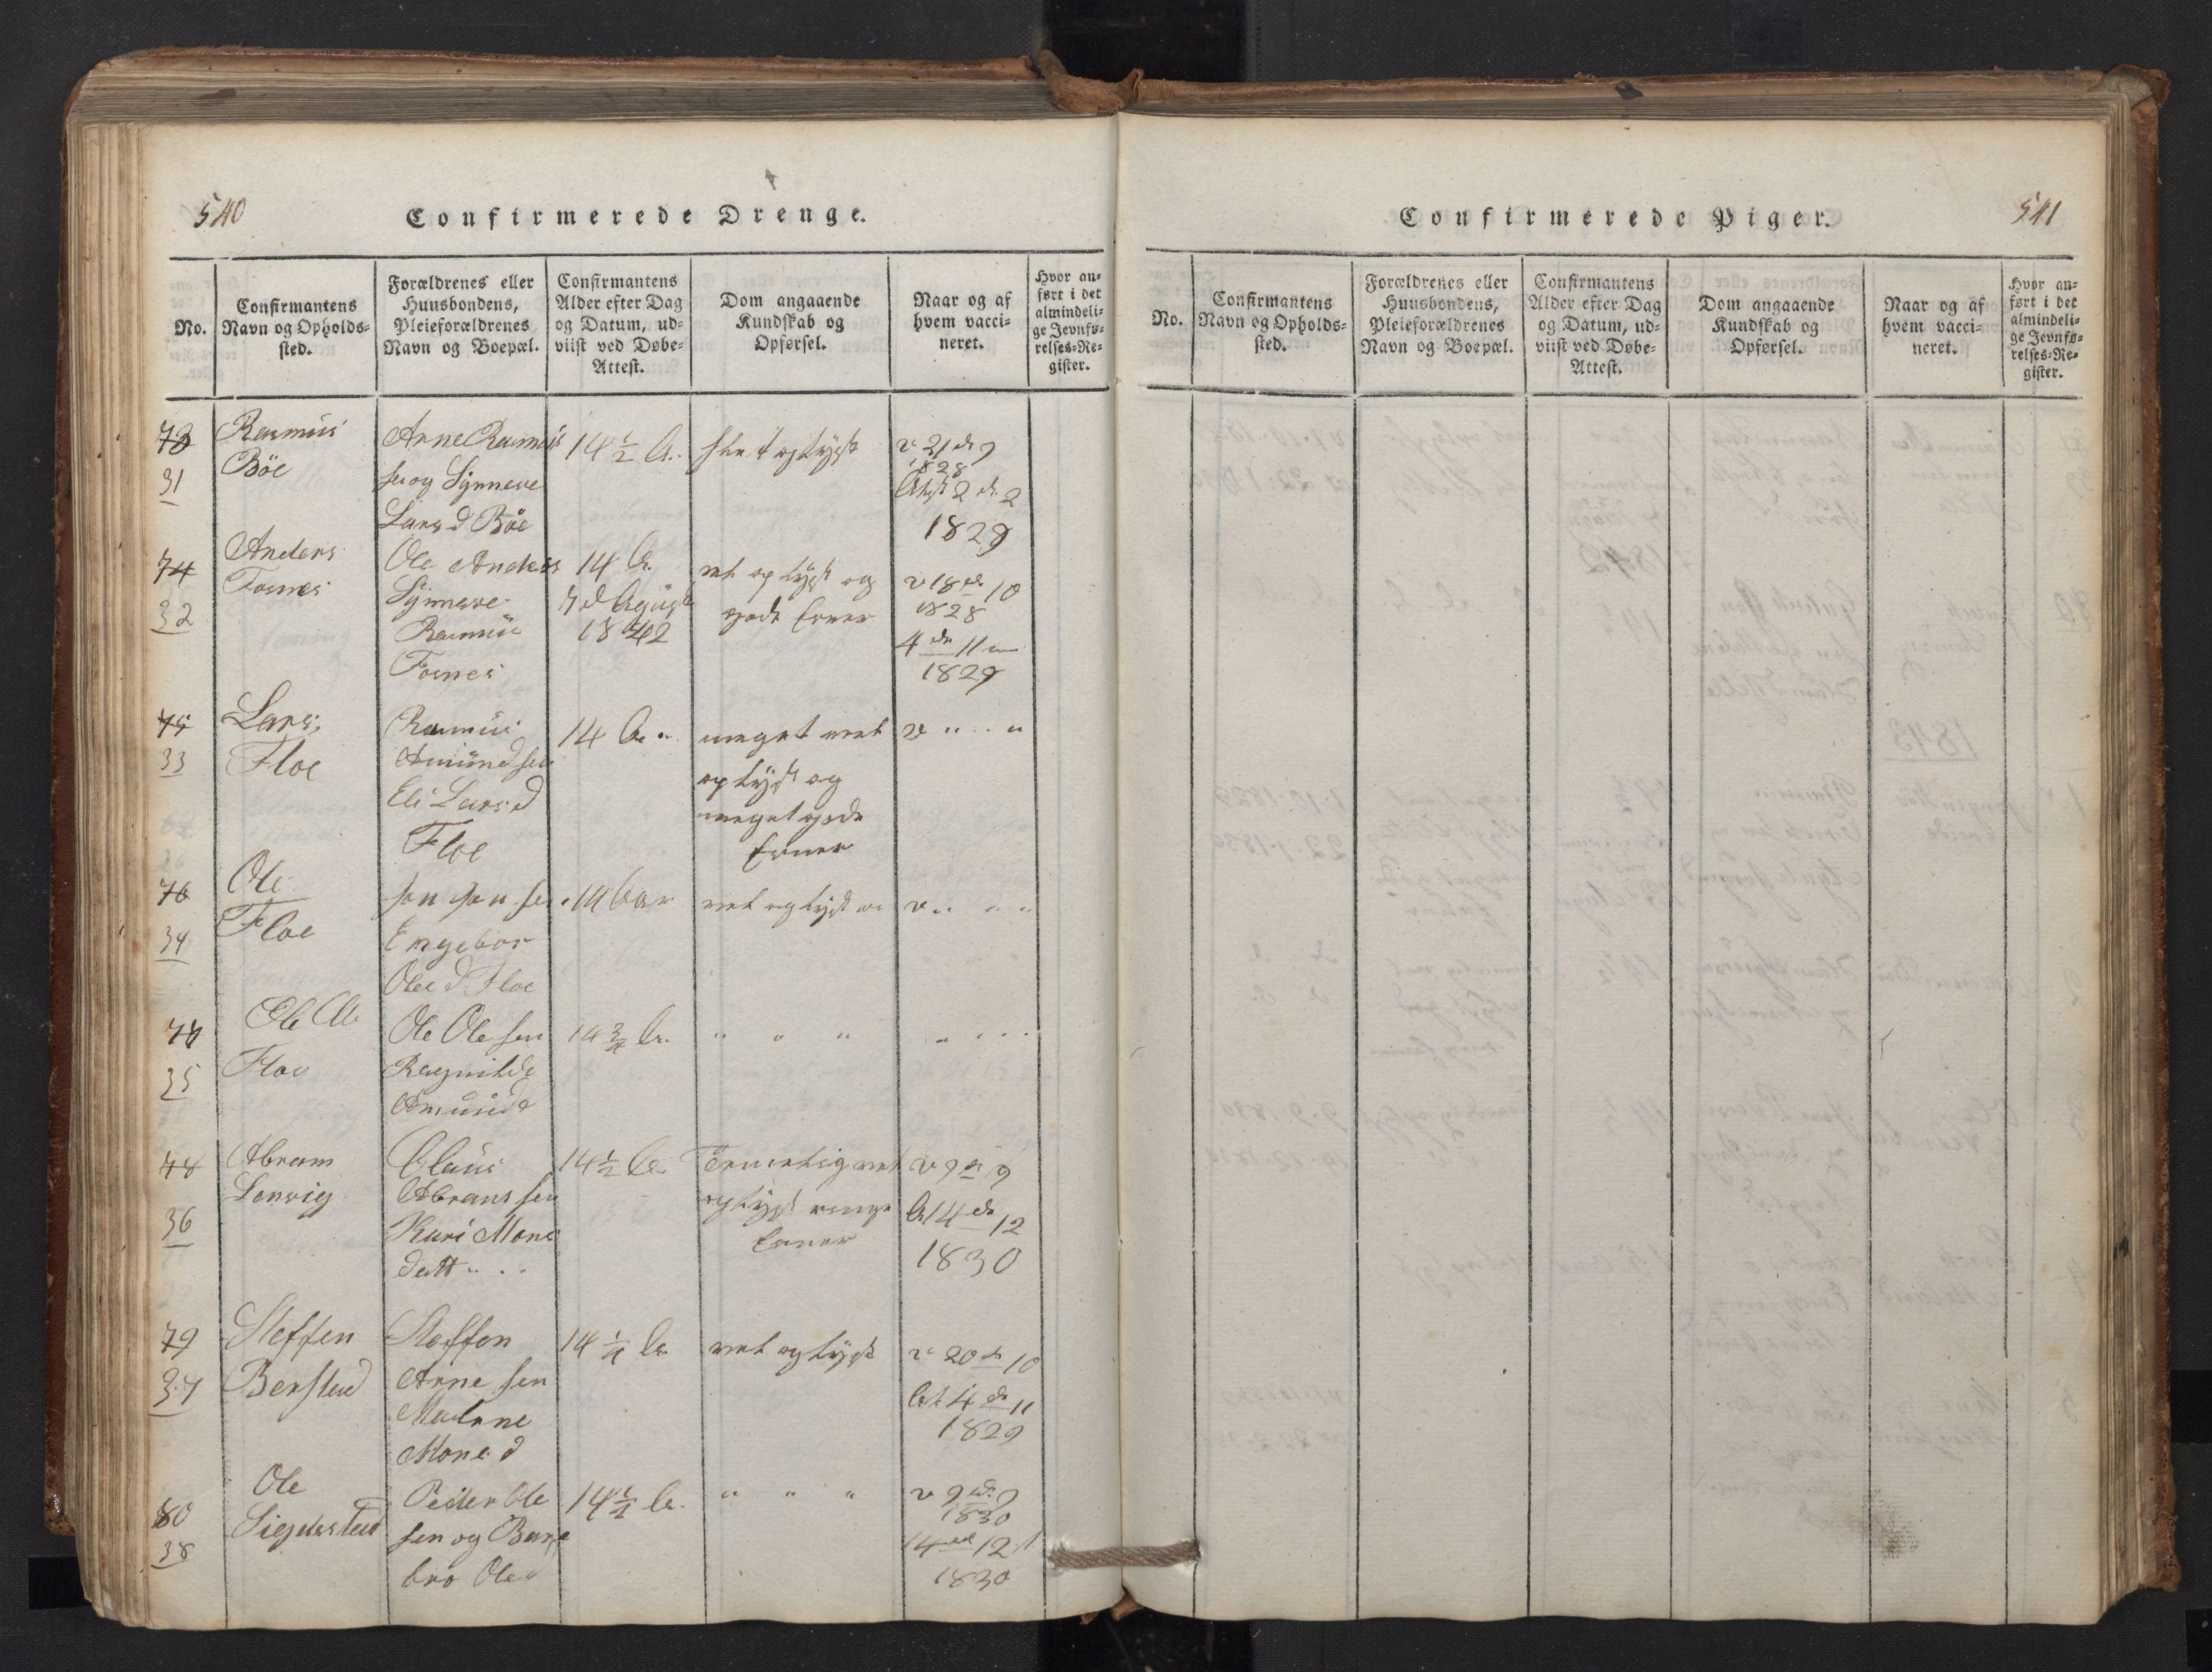 540
Confirmerede Drenge.
No.
Confirmantens
Navn og Opholds-
sted.
Forældrenes eller
Huusbondens,
Pleieforældrenes
Navn og Boepæl.
Confirmantens
Alder efter Dag
og Datum, ud-
viist ved Døbe-
Attest.
Dom angaaende
Kundskab og
Opførsel.
Naar og af
hvem vacci-
neret.
Hvor an-
ført i det
almindeli-
ge Jevnfø-
relses-Re-
gister.
73
31
Rasmus
Böe
Arne Rasmus
sen og Synneve
Lars d Böe
14 1/2 A.
oplyst
v 21 d 9
1828
2 d. 2
1829
74
32
Anders
Fosnes
Ole Anders
Synneve
Rasmus
Fosnes
14 A.
d August
1842
ret oplyst og
gode Evner
v 18 d 10
1828
4 d 11
1829
75
33
Lars
Floe
Rasmus
Amundsen
Eli Lars d
Floe
14 A.
meget vel
oplyst og
meget gode
Evner
v " " "
76
34
Ole
Floe
Jon Jonsen
Engebor
Ole d Floe
14 Aar
vel oplyst
v " " "
77
35
Ole
Floe
Ole Olesen
Ragnilde
Amund d
14 3/4 A.
" " "
" " "
78
36
Abram
Lonvig
Claus
Abramsen
Kari Mons
datt " "
14 1/2 A.
Temmelig vel
oplyst ringe
Evner
v 9 d 9
14 d 12
1830
79
37
Steffen
Berstad
Steffen
Arnesen
Malene
Mons d
14 1/4 A.
vel oplyst
v 20 d 10
4 d 11
1829
80
38
Ole
Sigdestad
Peder Ole
sen og Bar
bro Ole d
14 1/2 A.
" " "
v 9 d. 9
1830
14 d 12
1830
541
Confirmerede Piger.
No.
Confirmantens
Navn og Opholds-
sted.
Forældrenes eller
Huusbondens,
Pleieforældrenes
Navn og Boepæl.
Confirmantens
Alder efter Dag
og Datum, ud-
viist ved Døbe-
Attest.
Dom angaaende
Kundskab og
Opførsel.
Naar og af
hvem vacci-
neret.
Hvor an-
ført i det
almindeli-
ge Jevnfø-
relses-Re-
gister.